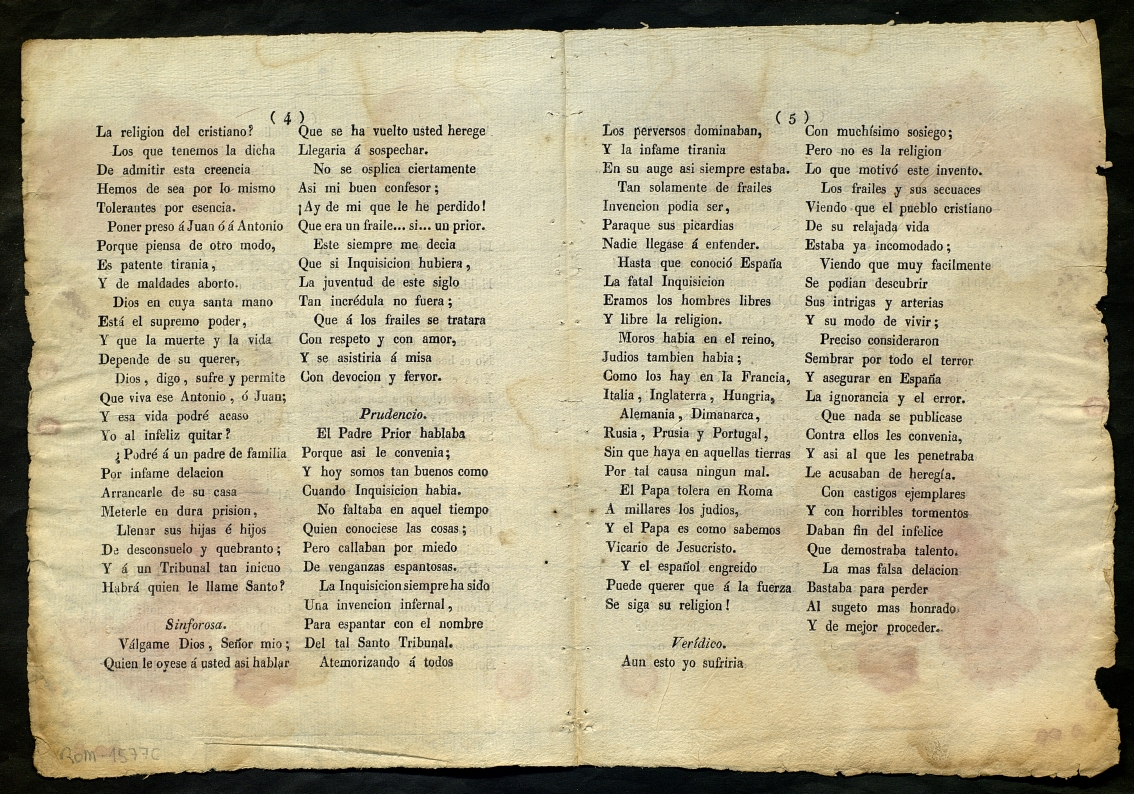 ( 4 )
La religion del cristiano?
Los que tenemos la dicha
De admitir esta creencia
Hemos de sea por lo mismo
Tolerantes por esencia.
Poner preso á Juan ó á Antonio
Porque piensa de otro modo,
Es patente tirania,
Y de maldades aborto.
Dios en cuya santa mano
Está el supremo poder,
Y que la muerte y la vida
Depende de su querer,
Dios, digo, sufre y permite
Que viva ese Antonio, ó Juan;
Y esa vida podré acaso
Yo al infeliz quitar?
¿Podré á un padre de familia
Por infame delacion
Arrancarle de su casa
Meterle en dura prision,
Llenar sus hijas é hijos
De desconsuelo y quebranto;
Y á un Tribunal tan inicuo
Habrá quien le llame Santo?
Sinforosa.
Válgame Dios, Señor mio;
Quien le oyese á usted asi hablar
Que se ha vuelto usted herege
Llegaria á sospechar.
No se osplica ciertamente
Asi mi buen confesor;
¡Ay de mi que le he perdido!
Que era un fraile... si... un prior.
Este siempre me decia
Que si Inquisicion hubiera,
La juventud de este siglo
Tan incrédula no fuera;
Que á los frailes se tratara
Con respeto y con amor,
Y se asistiria á misa
Con devocion y fervor.
Prudencio.
El Padre Prior hablaba
Porque asi le convenia;
Y hoy somos tan buenos como
Cuando Inquisicion habia.
No faltaba en aquel tiempo
Quien conociese las cosas;
Pero callaban por miedo
De venganzas espantosas.
La Inquisicion siempre ha sido
Una invencion infernal,
Para espantar con el nombre
Del tal Santo Tribunal.
Atemorizando á todos
( 5 )
Los perversos dominaban,
Y la infame tirania
En su auge asi siempre estaba.
Tan solamente de frailes
Invencion podia ser,
Paraque sus picardias
Nadie llegase á entender.
Hasta que conoció España
La fatal Inquisicion
Eramos los hombres libres
Y libre la religion.
Moros habia en el reino,
Judios tambien habia;
Como los hay en la Francia,
Italia, Inglaterra, Hungria,
Alemania, Dimanarca,
Rusia, Prusia y Portugal,
Sin que haya en aquellas tierras
Por tal causa ningun mal.
El Papa tolera en Roma
A millares los judios,
Y el Papa es como sabemos
Vicario de Jesucristo.
Y el español engreido
Puede querer que á la fuerza
Se siga su religion!
Verídico.
Aun esto yo sufriria
Con muchísimo sosiego;
Pero no es la religion
Lo que motivó este invento.
Los frailes y sus secuaces
Viendo que el pueblo cristiano
De su relajada vida
Estaba ya incomodado;
Viendo que muy facilmente
Se podian descubrir
Sus intrigas y arterias
Y su modo de vivir;
Preciso consideraron
Sembrar por todo el terror
Y asegurar en España
La ignorancia y el error.
Que nada se publicase
Contra ellos les convenia,
Y asi al que les penetraba
Le acusaban de heregía.
Con castigos ejemplares
Y con horribles tormentos
Daban fin del infelice
Que demostraba talento.
La mas falsa delacion
Bastaba para perder
Al sugeto mas honrado
Y de mejor proceder.
ROM-15770